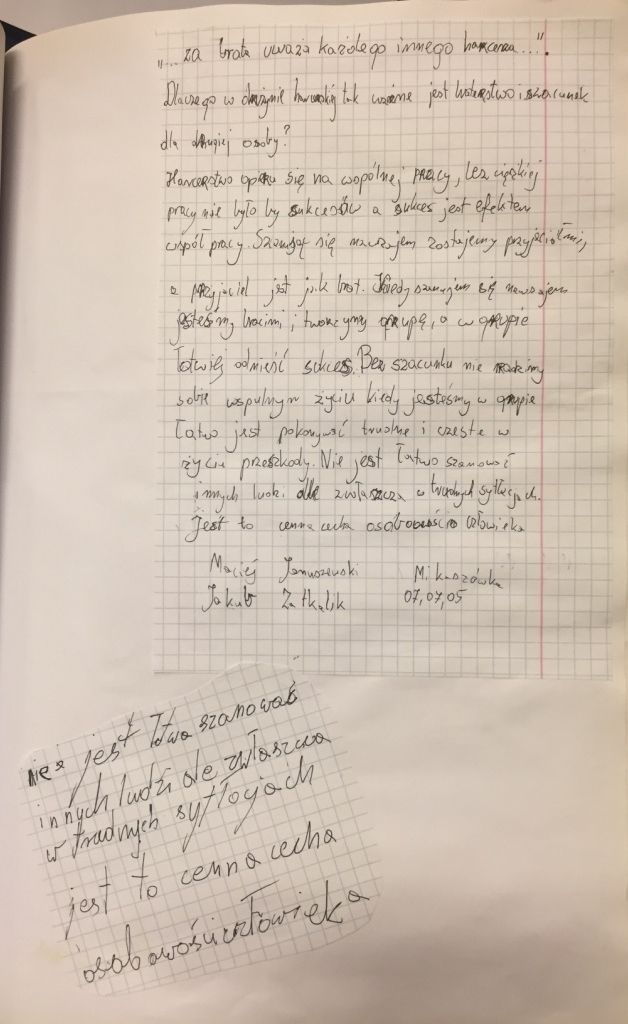 "... za brata uważa każdego innego harcerza..."
Dlaczego w drużynie harcerskiej tak ważne jest braterstwo i szacunek
dla drugiej osoby?
Harcerstwo opera się na wspólnej pracy, bez ciężkiej
pracy nie było by sukcesów a sukces jest efektem
współpracy. Szanując się nawzajem zostajemy przyjaciółmi,
a przyjaciel jest jak brat. Kiedy szanujem się nawzajem
jesteśmy braćmi i tworzymy grupę, a w grupie
łatwiej odnieść sukces. Bez szacunku nie radzimy
sobie wspulnym życiu kiedy jesteśmy w grupie
łatwo jest pokonywać trudne i częste w
życiu przeszkody. Nie jest łatwo szanować
innych ludzi zwłaszcza w trudnych sytłacjach.
Jest to cenna cecha człowieka
Maciej Januszewski Mikaszówka
Jakub Zatkalik 07,07,05
nie jest łatwo szanować
innych ludzi ale zwłaszcza
w trudnych sytłocjach
jest to cenna cecha
osobowości człowieka